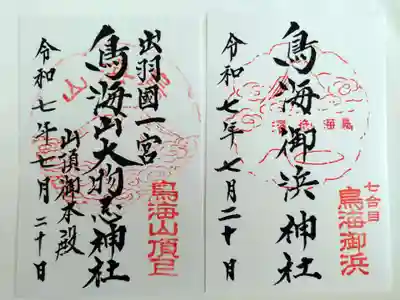 七合目
鳥海御浜
鳥海御浜神社
令和七年七月二十日
出羽國一宮
鳥海山大物忌神社
山頂御本殿
令和七年七月二十日
鳥海山頂